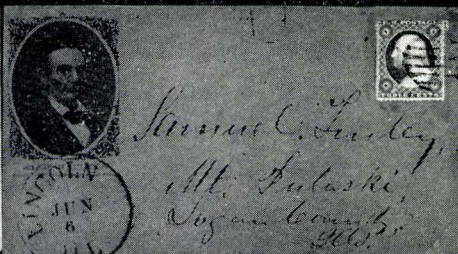 Samuel C. Finley,
Mt. Pulaski,
Logan County,
Ills.
LINCOLN
JUN
6
ILL